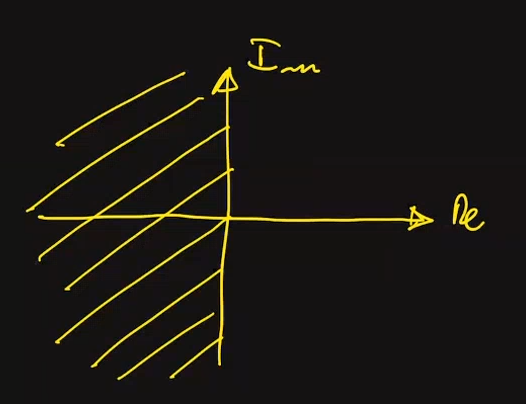 Im
Re